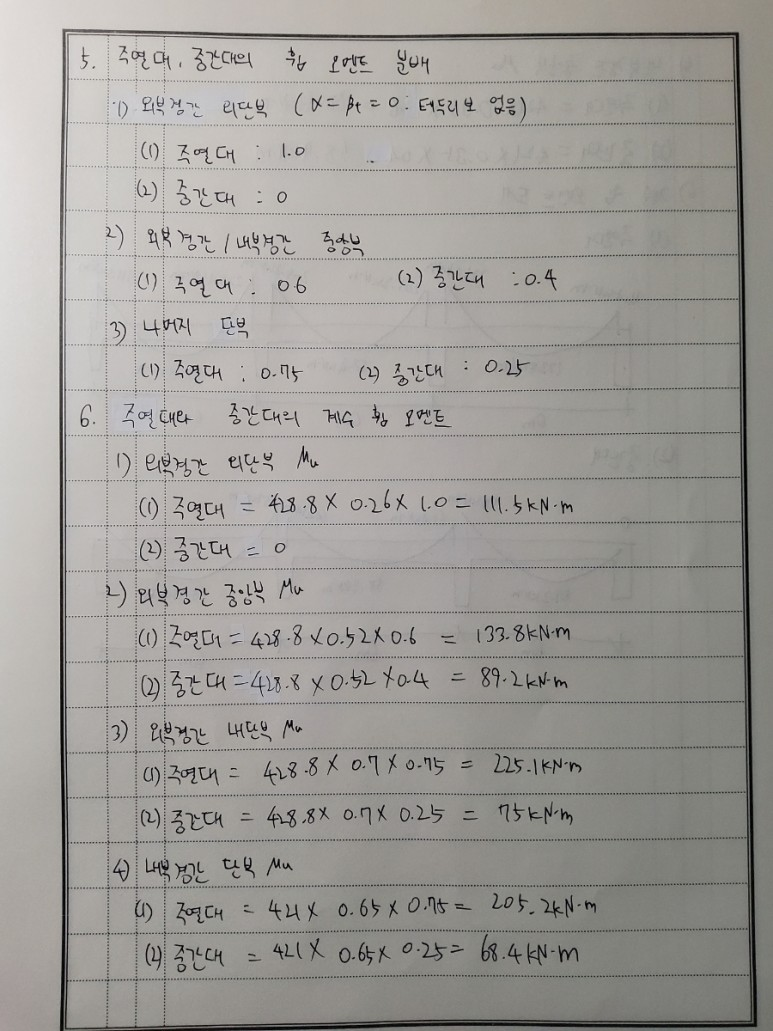 5. 주열대, 중간대의 휨 모멘트 분배
1) 외부경간 외단부 (α = βt = 0 : 테두리보 없음)
(1) 주열대 : 1.0
(2) 중간대 : 0
2) 외부경간 / 내부경간 중앙부
(1) 주열대 : 0.6 (2) 중간대 : 0.4
3) 나머지 단부
(1) 주열대 : 0.75 (2) 중간대 : 0.25
6. 주열대와 중간대의 계수 휨 모멘트
1) 외부경간 외단부 Mu
(1) 주열대 = 428.8 × 0.26 × 1.0 = 111.5 kN·m
(2) 중간대 = 0
2) 외부경간 중앙부 Mu
(1) 주열대 = 428.8 × 0.52 × 0.6 = 133.8 kN·m
(2) 중간대 = 428.8 × 0.52 × 0.4 = 89.2 kN·m
3) 외부경간 내단부 Mu
(1) 주열대 = 428.8 × 0.7 × 0.75 = 225.1 kN·m
(2) 중간대 = 428.8 × 0.7 × 0.25 = 75 kN·m
4) 내부경간 단부 Mu
(1) 주열대 = 421 × 0.65 × 0.75 = 205.2 kN·m
(2) 중간대 = 421 × 0.65 × 0.25 = 68.4 kN·m